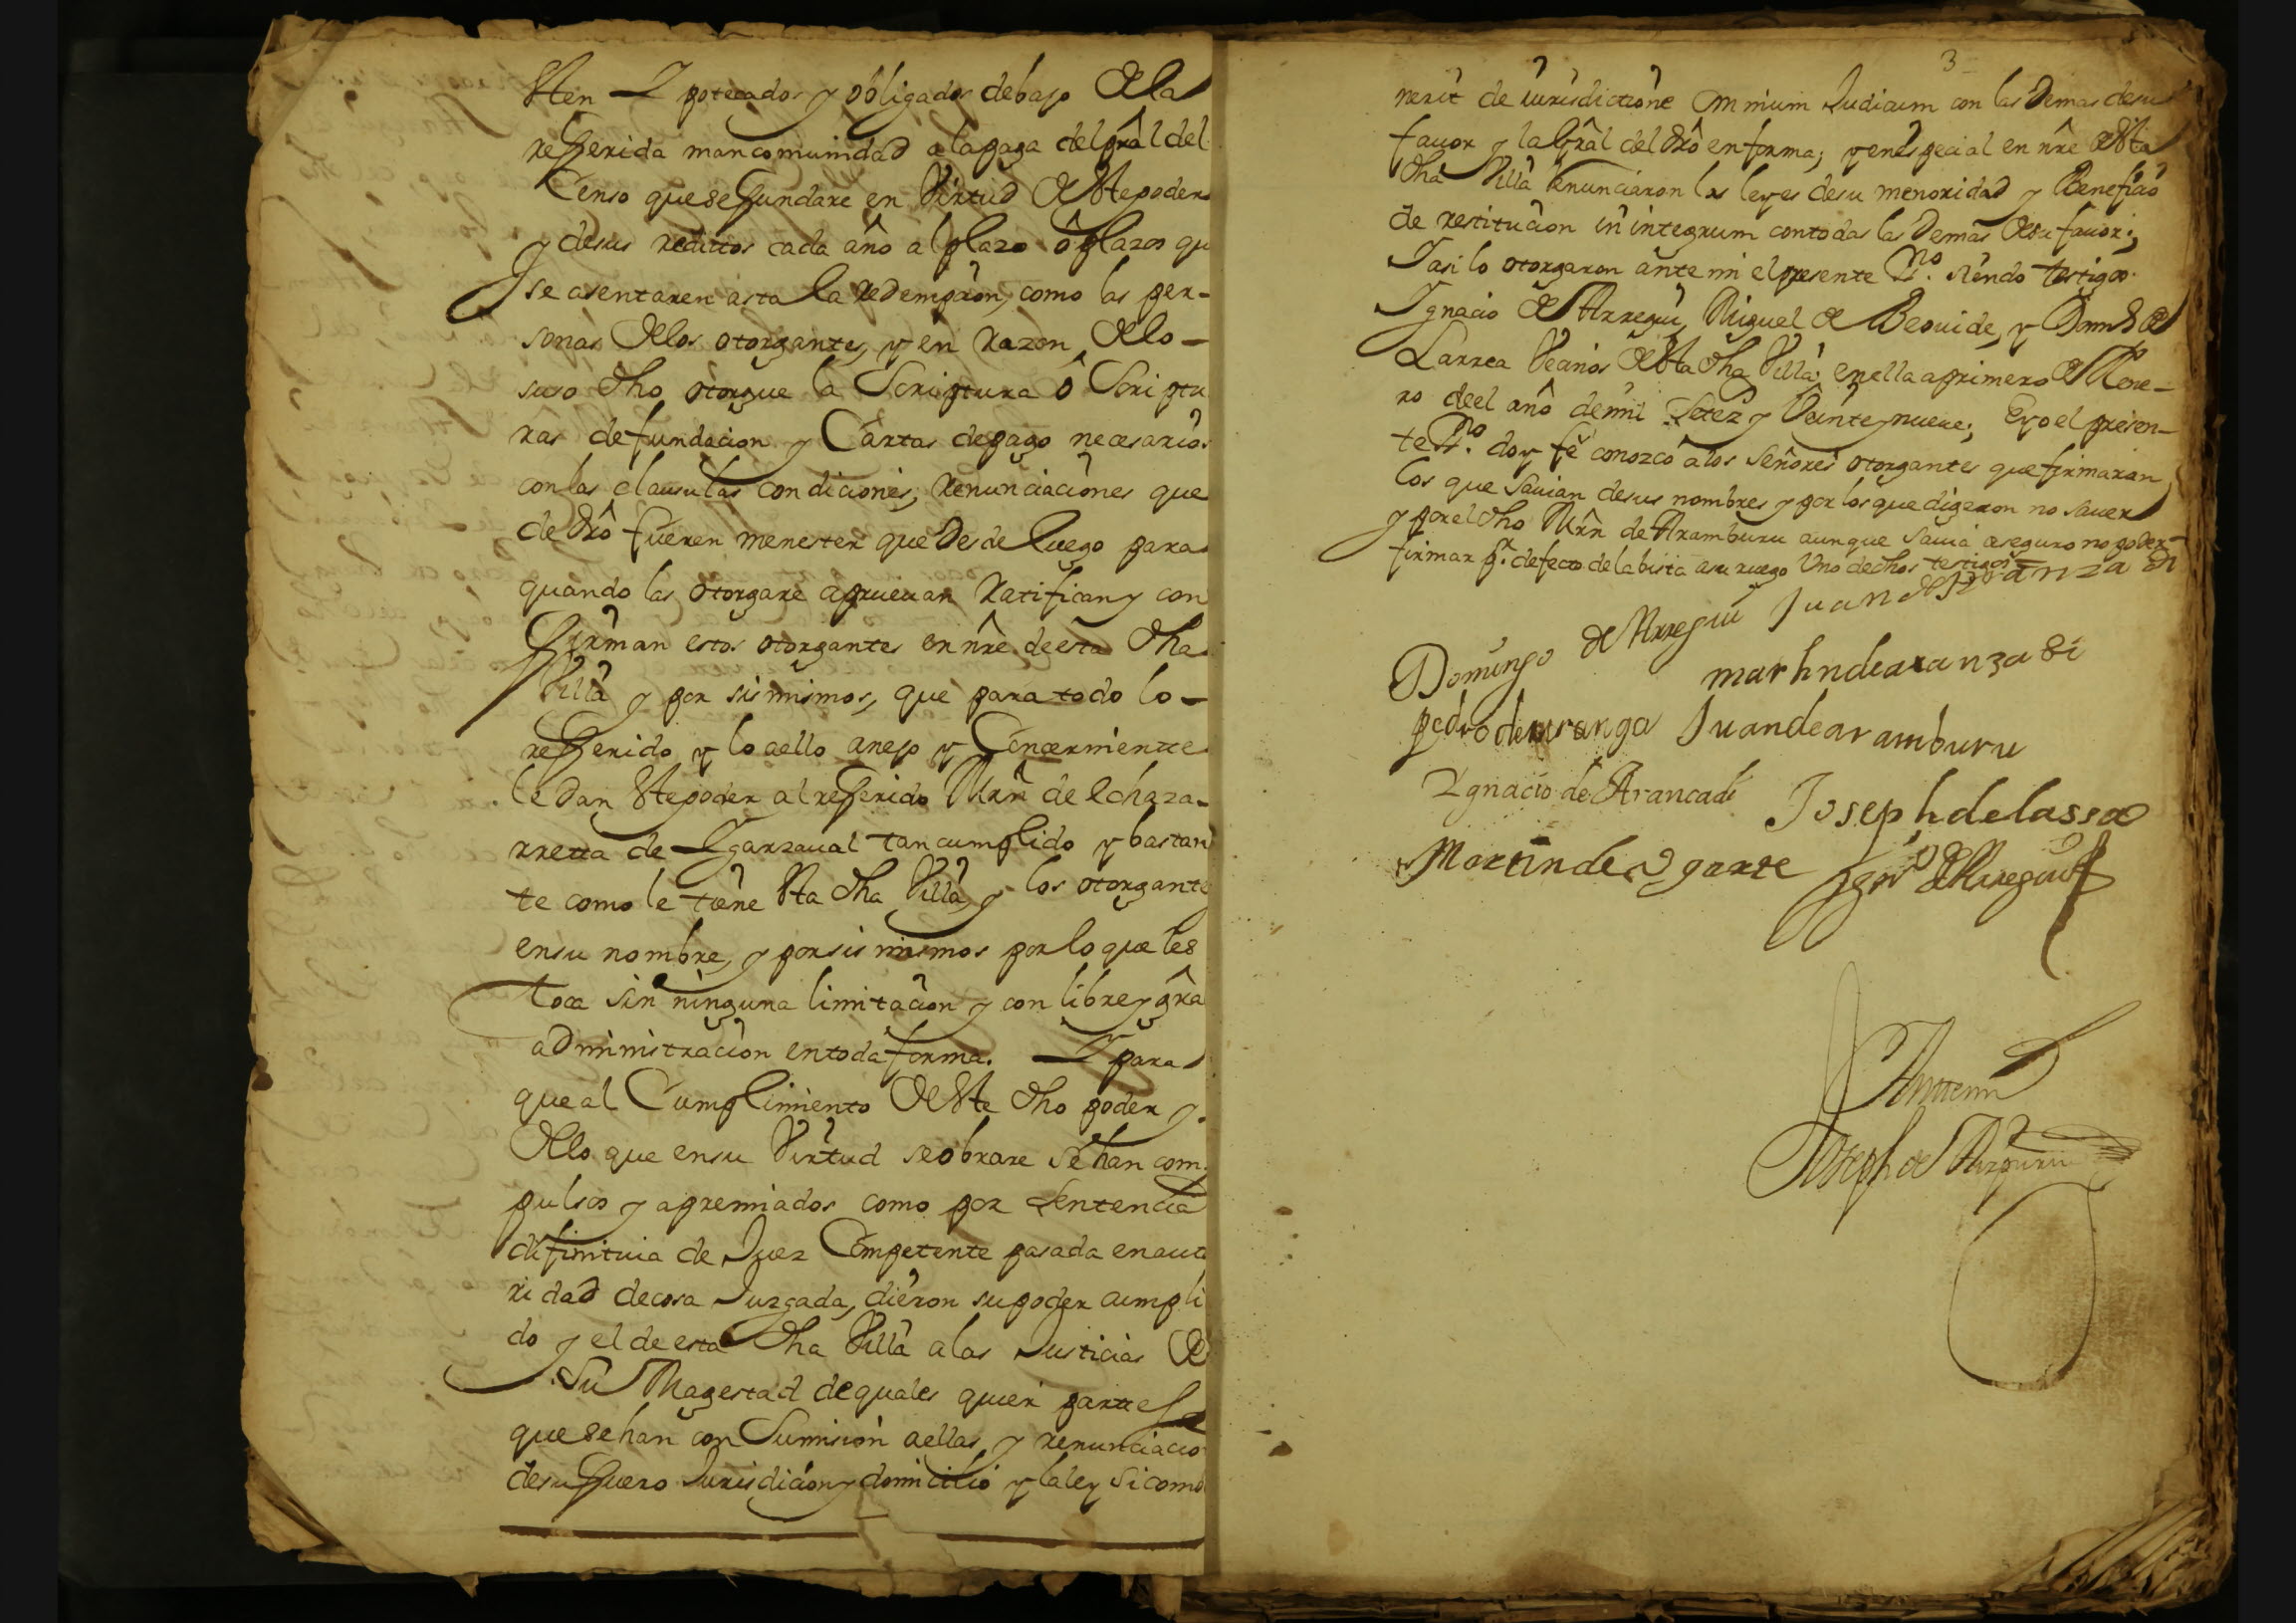 esten Ypotecados y obligados debajo de la
refferida mancomunidad a la paga del prâl del
Censo que se ffundare en Virtud de este poder
y de sus reditos cada año al plazo ô plazos qu
se asentaren asta la redempcion, como las per-
sonas de los otorgantes, y en razon de lo-
suso dho otorgue la Scriptura ô Scriptu
ras de fundacion y Cartas de pago necesarios
con las clausulas condiciones, renunciaciones que
de drô fueren menester que desde luego para
quando las otorgare aprueuan ratifican y con
ffirman estos otorgantes en nrê de esta dha
Villa y por si mismos, que para todo lo-
refferido y lo a ello anejo y Concerniente
le dan este poder al refferido Mrn de Echaza-
rreta de Ygarzaual tan cumplido y bastan
te como le tiene esta dha Villa, y los otorgante
en su nombre, y por si mismos por lo que les
toca sin ninguna limitacion y con libre y grâ
administracion en toda forma. Y para
que al Cumplimiento de este dho poder y
de lo que en su Virtud se obrare se han com
pulsos y apremiados como por sentencia
difinitiua de Juez Competente pasada en auto
ridad de cosa Juzgada, dieron su poder cumpli
do y el de esta dha Villa a las Justicias de
Su Magestad de quales quier partes
que se han con Sumision a ellas, y renunciacio
de su ffuero Jurisdicion y domicilio y la ley si com
3
nerit de iurisdictione omnium Judicum con las demas de su
fauor y la Grâl del drô en forma; y en especial en nrê de esta
dha Villa renunciaron las leyes de su menoridad y Beneficio
de restitucion in integrum con todas las demas de su fauor;
Y asi lo otorgaron ante mi el presente Sno. siendo testigos
Ygnacio de Arregui, Miguel de Beouide, y Domô de
Larrea Vecinos de esta dha Villa; en ella a primero de Hene-
ro de el año de mil Setez y Veinte y nueue; E yo el presen-
te Sno. doy fê conozco a los señores otorgantes que firmaran
los que sauian de sus nombres y por los que digeron no sauer
y por el dho Mrn de Aramburu aunque sauia aseguro no poder
firmar pr. defecto de la bista a su ruego Uno de dhos testigos
Domingo de Arregui Juan de Aranzadi
martin de aranzadi
pedro de uranga Juan de aramburu
Ygnacio de Arancadi Joseph de lassa
Martin de Ugarte Ygno de Arregui
Ante mi
Joseph de Aizpuru